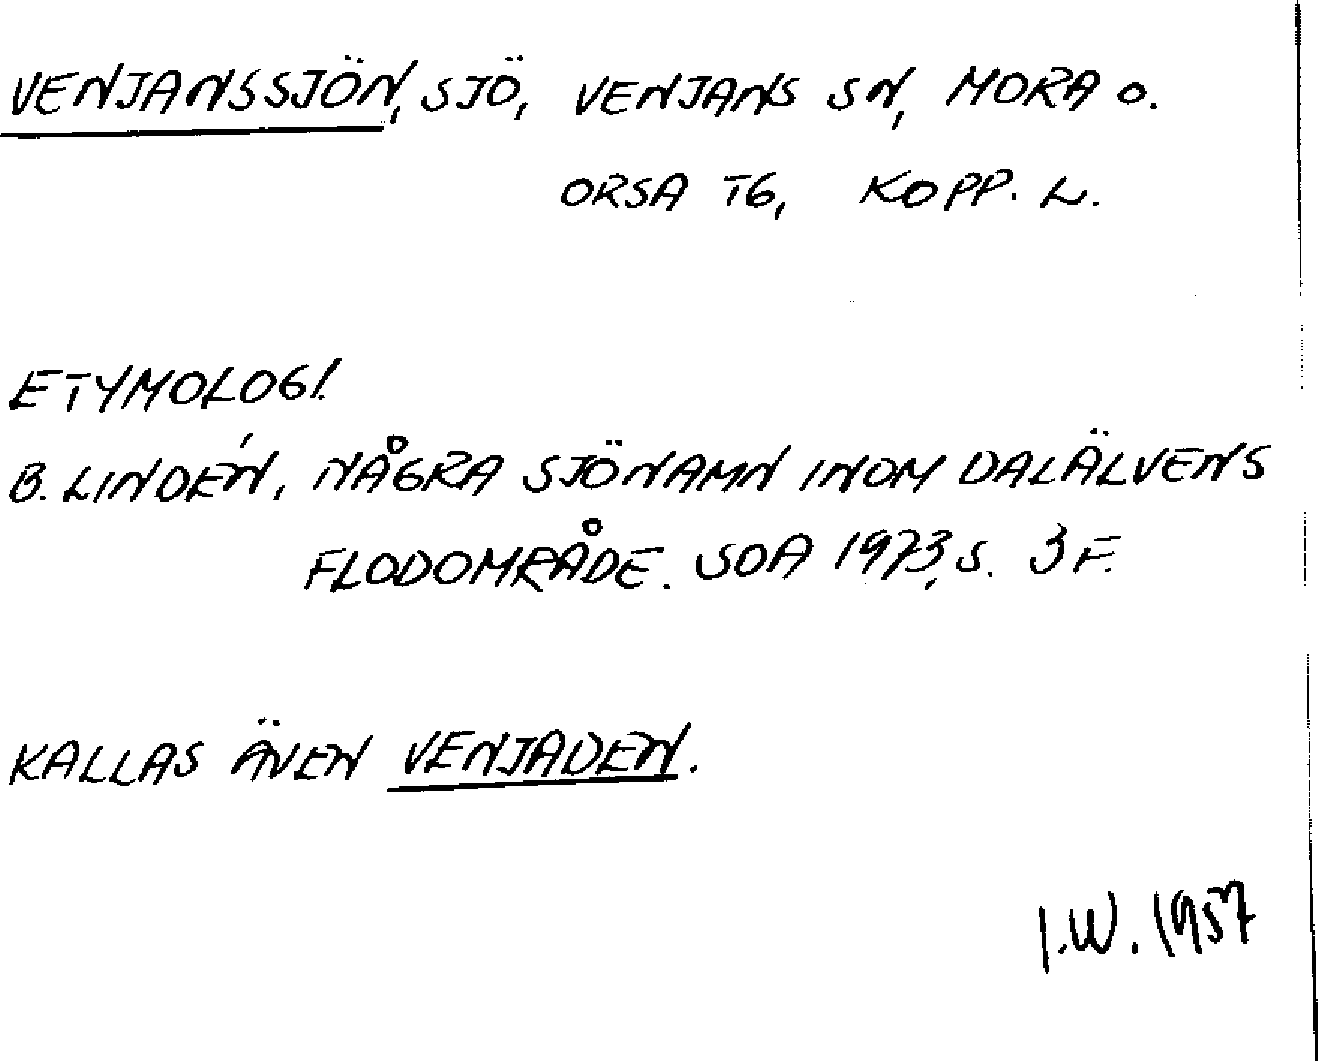 VENJANSSJÖN, SJÖ, VENJANS SN, MORA O.
ORSA TG, KOPP. L.
ETYMOLOGI.
B. LINDÉN, NÅGRA SJÖNAMN INOM DALÄLVENS
FLODOMRÅDE. SOA 1973, S. 3 F.
KALLAS ÄVEN VENJADEN.
I.W. 1957